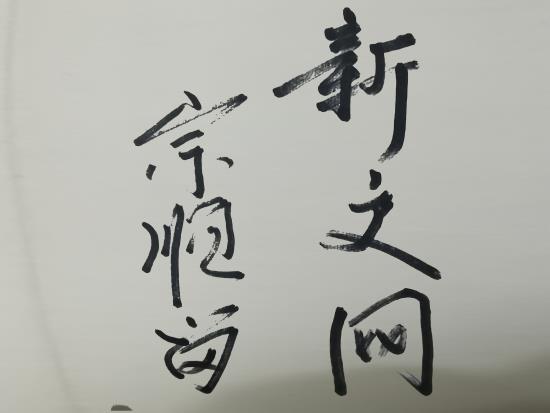 新文网
宗顺留